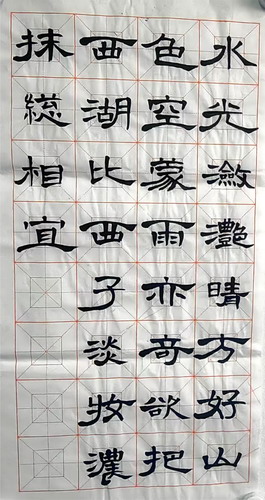 水光瀲灩晴方好山
色空蒙雨亦奇欲把
西湖比西子淡妝濃
抹総相宜